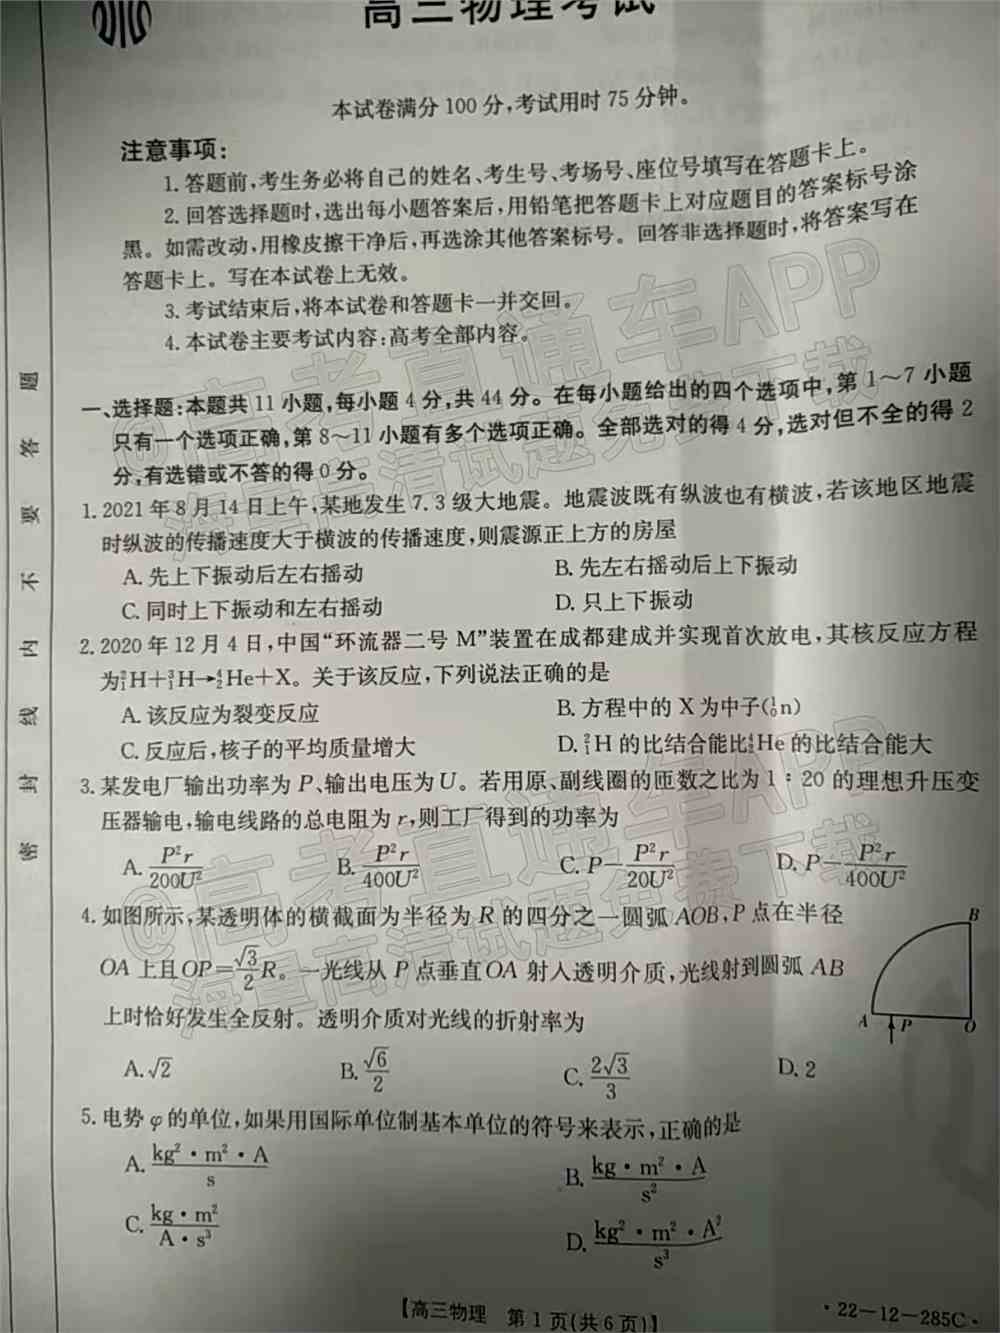 高三物理考试
本试卷满分100分,考试用时75分钟。
注意事项:
1.答题前,考生务必将自己的姓名、考生号、考场号、座位号填写在答题卡上。
2.回答选择题时,选出每小题答案后,用铅笔把答题卡上对应题目的答案标号涂
黑。如需改动,用橡皮擦干净后,再选涂其他答案标号。回答非选择题时,将答案写在
答题卡上。写在本试卷上无效。
3.考试结束后,将本试卷和答题卡一并交回。
4.本试卷主要考试内容:高考全部内容。
一、选择题:本题共11小题,每小题4分,共44分。在每小题给出的四个选项中,第1~7小题
只有一个选项正确,第8~11小题有多个选项正确。全部选对的得4分,选对但不全的得2
分,有选错或不答的得0分。
1.2021年8月14日上午,某地发生7.3级大地震。地震波既有纵波也有横波,若该地区地震
时纵波的传播速度大于横波的传播速度,则震源正上方的房屋
A.先上下振动后左右摇动 B.先左右摇动后上下振动
C.同时上下振动和左右摇动 D.只上下振动
2.2020年12月4日,中国“环流器二号M”装置在成都建成并实现首次放电,其核反应方程
为²₁H+³₁H→⁴₂He+X。关于该反应,下列说法正确的是
A.该反应为裂变反应 B.方程中的X为中子(¹₀n)
C.反应后,核子的平均质量增大 D.²₁H的比结合能比⁴₂He的比结合能大
3.某发电厂输出功率为P、输出电压为U。若用原、副线圈的匝数之比为1:20的理想升压变
压器输电,输电线路的总电阻为r,则工厂得到的功率为
A. P²r/200U² B. P²r/400U² C. P-P²r/20U² D. P-P²r/400U²
4.如图所示,某透明体的横截面为半径为R的四分之一圆弧AOB,P点在半径
OA上且OP=√3/2R。一光线从P点垂直OA射入透明介质,光线射到圆弧AB
上时恰好发生全反射。透明介质对光线的折射率为
A.√2 B.√6/2 C.2√3/3 D.2
B
A P O
5.电势φ的单位,如果用国际单位制基本单位的符号来表示,正确的是
A. kg²·m²·A/s B. kg·m²·A/s²
C. kg·m²/A·s³ D. kg²·m²·A²/s³
【高三物理 第1页(共6页)】 ·22-12-285C·
密封线内不要答题
@高考直通车APP
海量高清试题免费下载
@高考直通车APP
海量高清试题免费下载